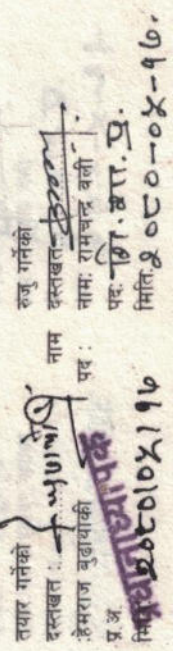 तयार गर्नेको
दस्तखत :
नाम
:हेमराज बुढाथोकी
पद :
प्र.अ.
मिति: २०८०।०५।१७
रुजु गर्नेको
दस्तखत:
नाम: रामचन्द्र वली
पद: नि.
मिति: २०८०-०५-१७.